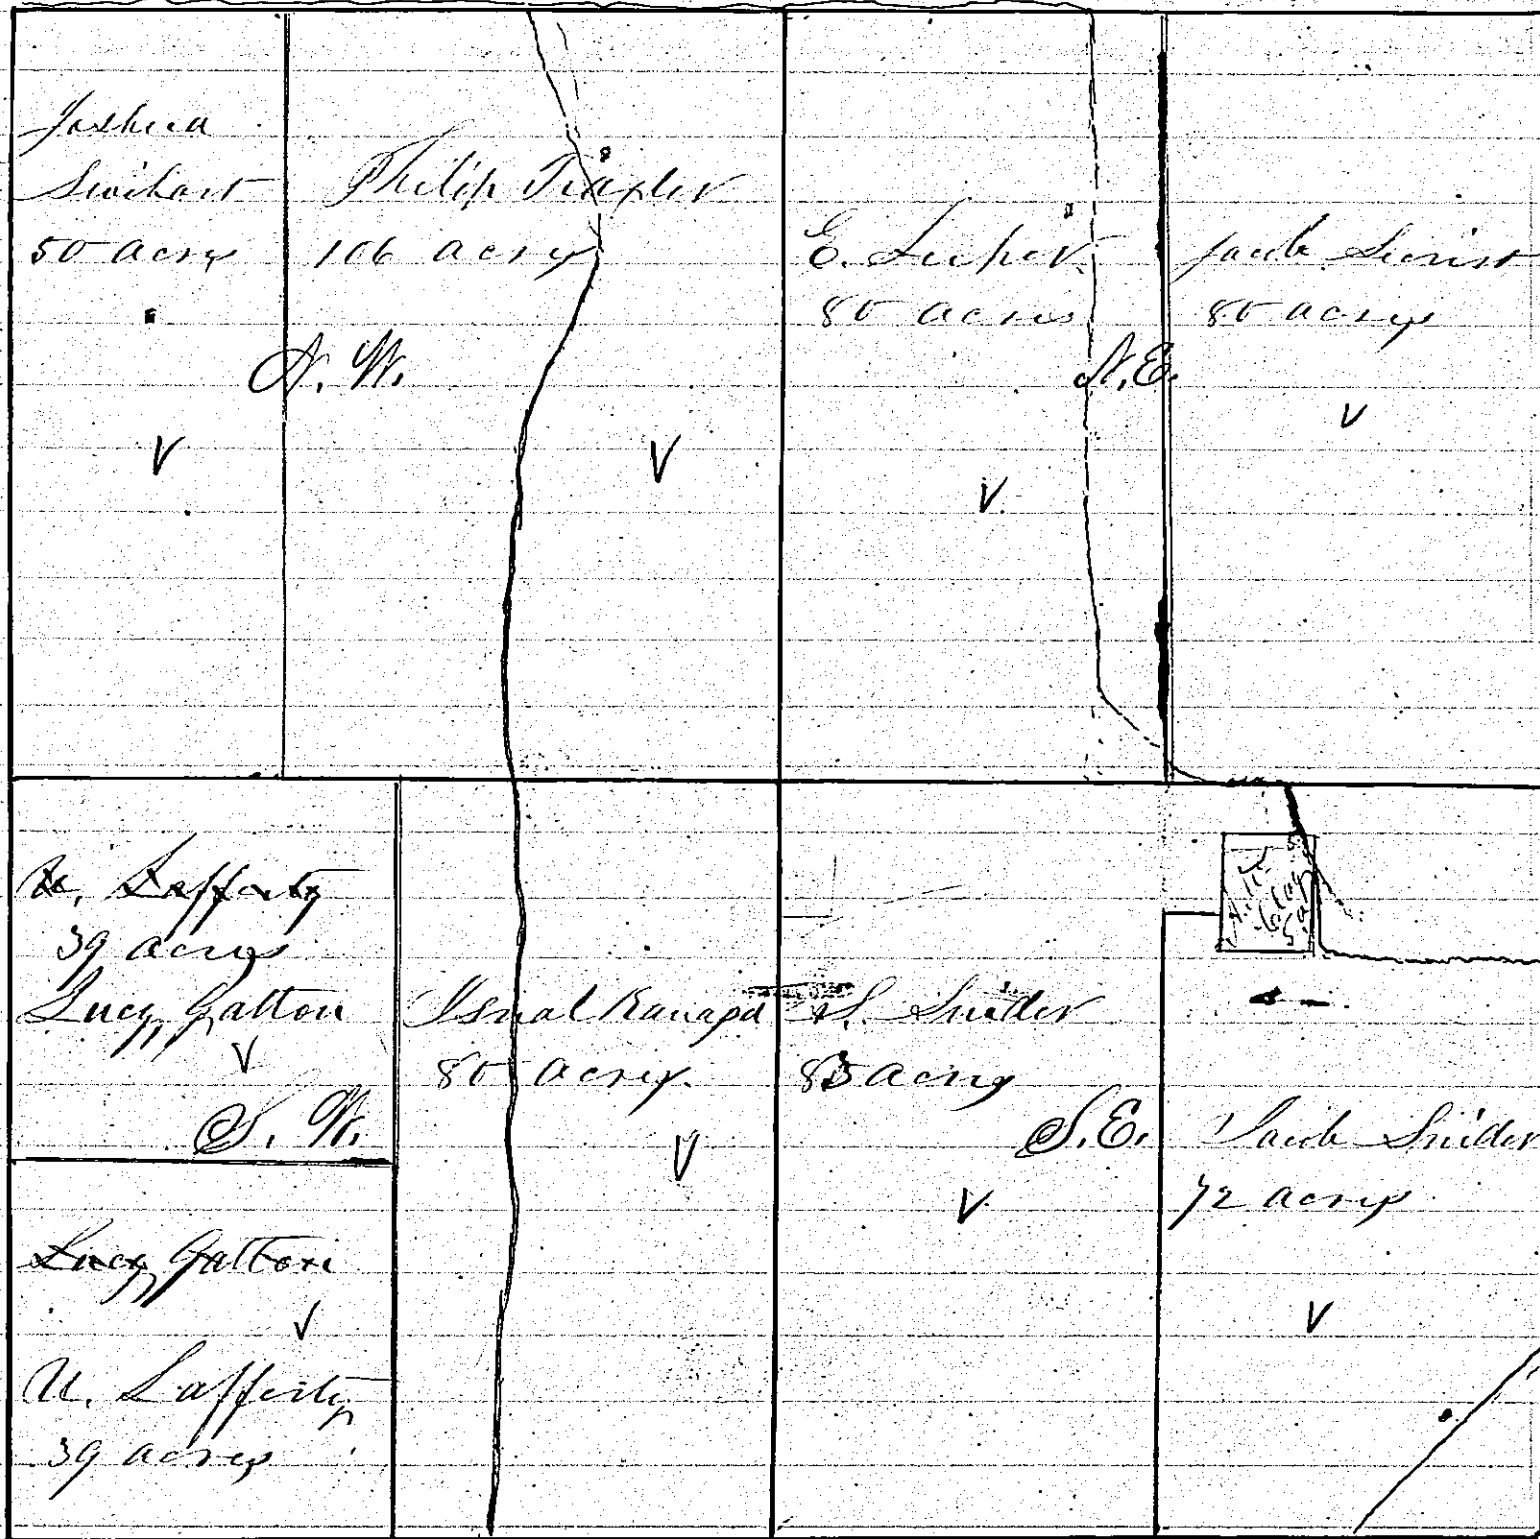 Joshua
Swihart
50 acres
Philip Traxler
106 acres
N. W.
E. Leeper
80 acres
N.E.
Jacob Secrist
80 acres
U. Lafferty
39 acres
Lucy Gatton
S. W.
Lucy Gatton
U. Lafferty
39 acres
Ismal Kanaga
80 acres.
S. Snider
83 acres
S.E.
Jacob Snider
72 acres